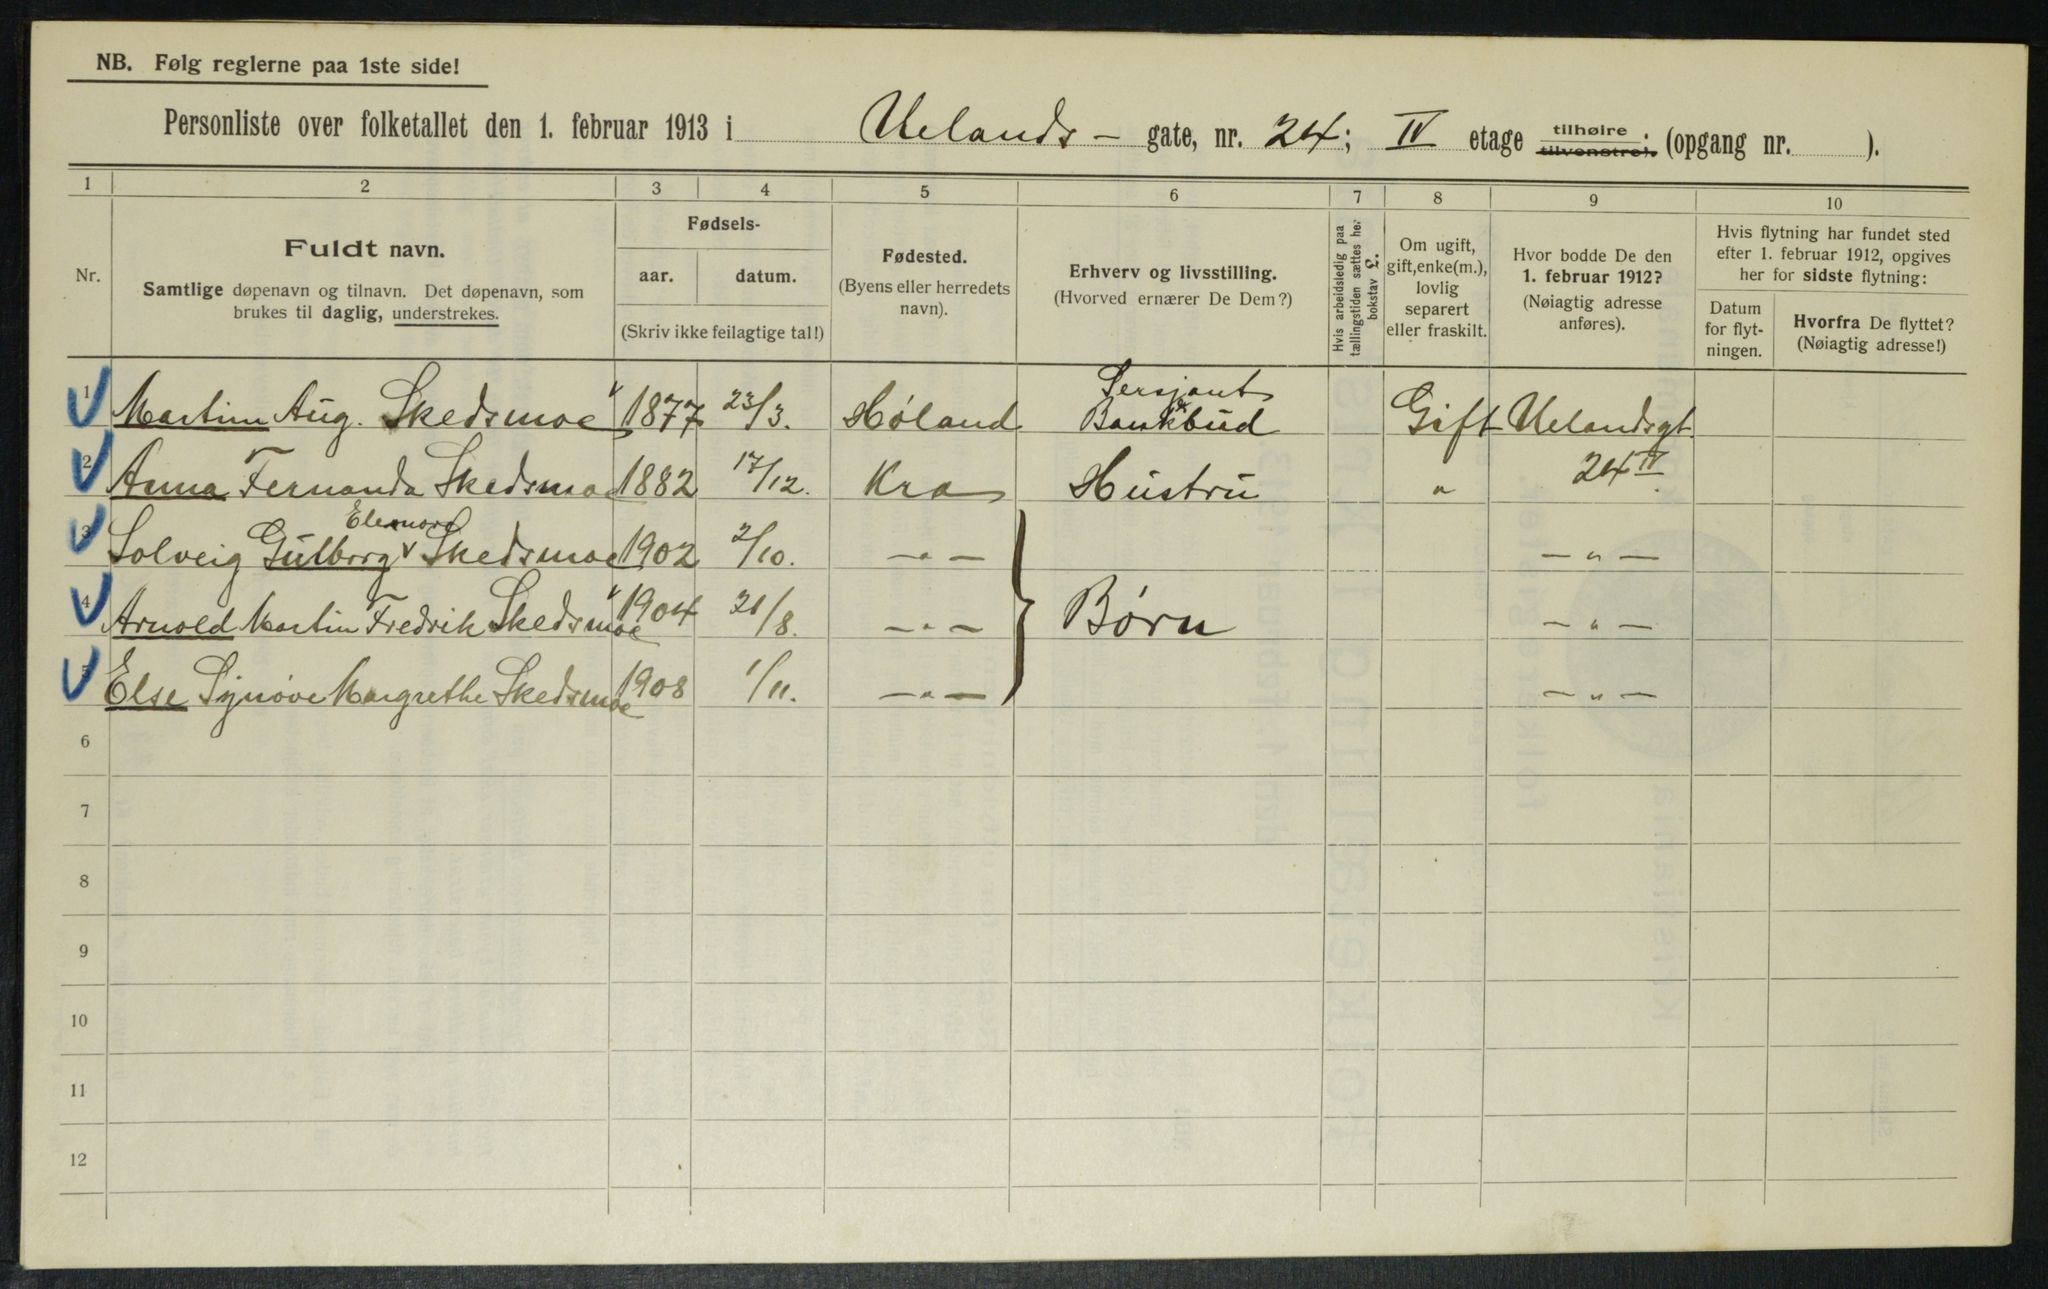 NB. Følg reglerne paa 1ste side!
Personliste over folketallet den 1. februar 1913 i Uelands - gate, nr. 24; IV etage tilhøire tilvenstre). ; (opgang nr. ).
1 2 3 4 5 6 7 8 9 10
Nr.
Fuldt navn.
Samtlige døpenavn og tilnavn. Det døpenavn, som
brukes til daglig, understrekes.
Fødsels-
aar. datum.
(Skriv ikke feilagtige tal!)
Fødested.
(Byens eller herredets
navn).
Erhverv og livsstilling.
(Hvorved ernærer De Dem?)
Hvis arbeidsledig paa
tællingstiden sættes her
bokstav £.
Om ugift,
gift, enke(m.),
lovlig
separert
eller fraskilt.
Hvor bodde De den
1. februar 1912?
(Nøiagtig adresse
anføres).
Hvis flytning har fundet sted
efter 1. februar 1912, opgives
her for sidste flytning:
Datum
for flyt-
ningen.
Hvorfra De flyttet?
(Nøiagtig adresse!)
1 Martin Aug. Skedsmoe 1877 23/3. Høland Sersjant & Bankbud Gift Uelandsgt
2 Anna Fernanda Skedsmoe 1882 17/12. Kra Hustru " 24 IV
3 Solveig Gulborg Eleonora Skedsmoe 1902 2/10. — " — — " —
4 Arnold Martin Fredrik Skedsmoe 1904 21/8. — " — Børn — " —
5 Else Synøve Margrethe Skedsmoe 1908 1/11. — " — — " —
6
7
8
9
10
11
12